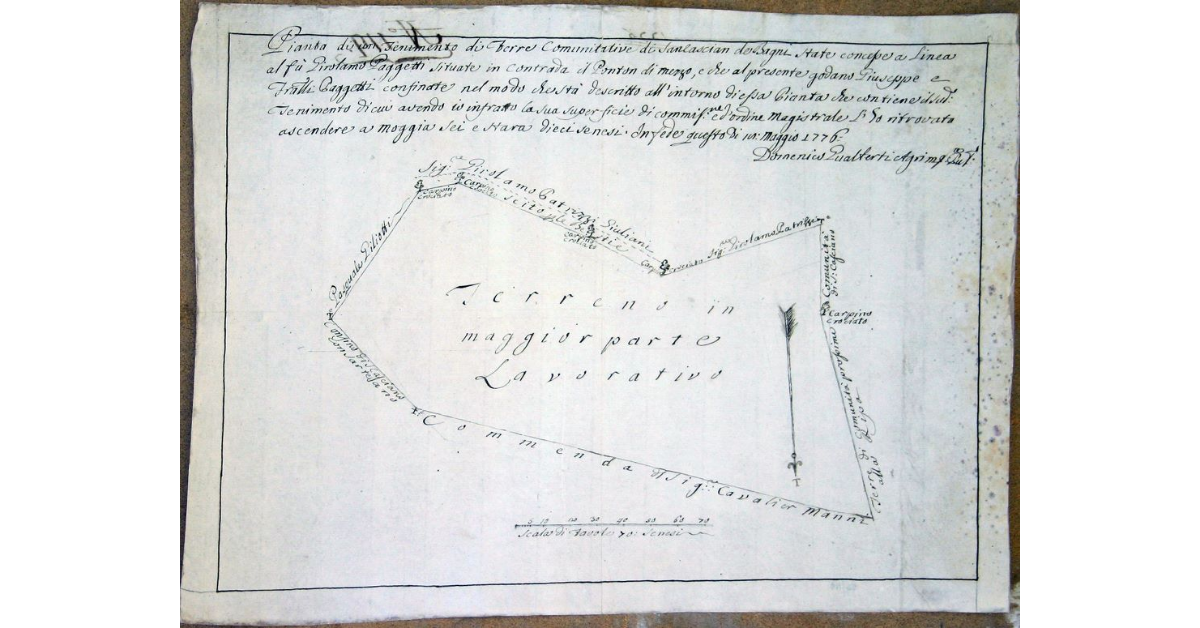 Pianta di un Tenimento di Terre Comunitative di Sancascian de Bagni State concesse a Linea
al fù Girolamo Paggetti situate in Contrada il Ponton di mezzo, e che al presente godano Giuseppe e
Fratelli Paggetti confinate nel modo che sta descritto all'intorno di essa Pianta che contiene il sud:
Tenimento di cui avendo io infratto la sua superficie di commiss:ne ed ordine Magistrale l'ho ritrovata
ascendere a Moggia Sei e Stara dieci senesi. In fede questo di 10: Maggio 1776:
Domenico Gualterti Agrim:
N:o
Sig:re Girolamo Patrizzi Giuliani
Carpino
crociato
Carpino
scito alle
Carpino
crociato
Carpino crociato
Sig:re Girolamo Patrizzi
Comunità
di S: Casciano
Carpino
crociato
Pasquale Piliotti
Terreno in
maggior parte
Lavorativo
Confino di S: Casciano
con Sarteano
Commenda di Sig:re Cavalier Manni
Terre di Comunità prossime
alla Ripa
5 10 20 30 40 50 60 70
Scala di Tavole 70: Senesi